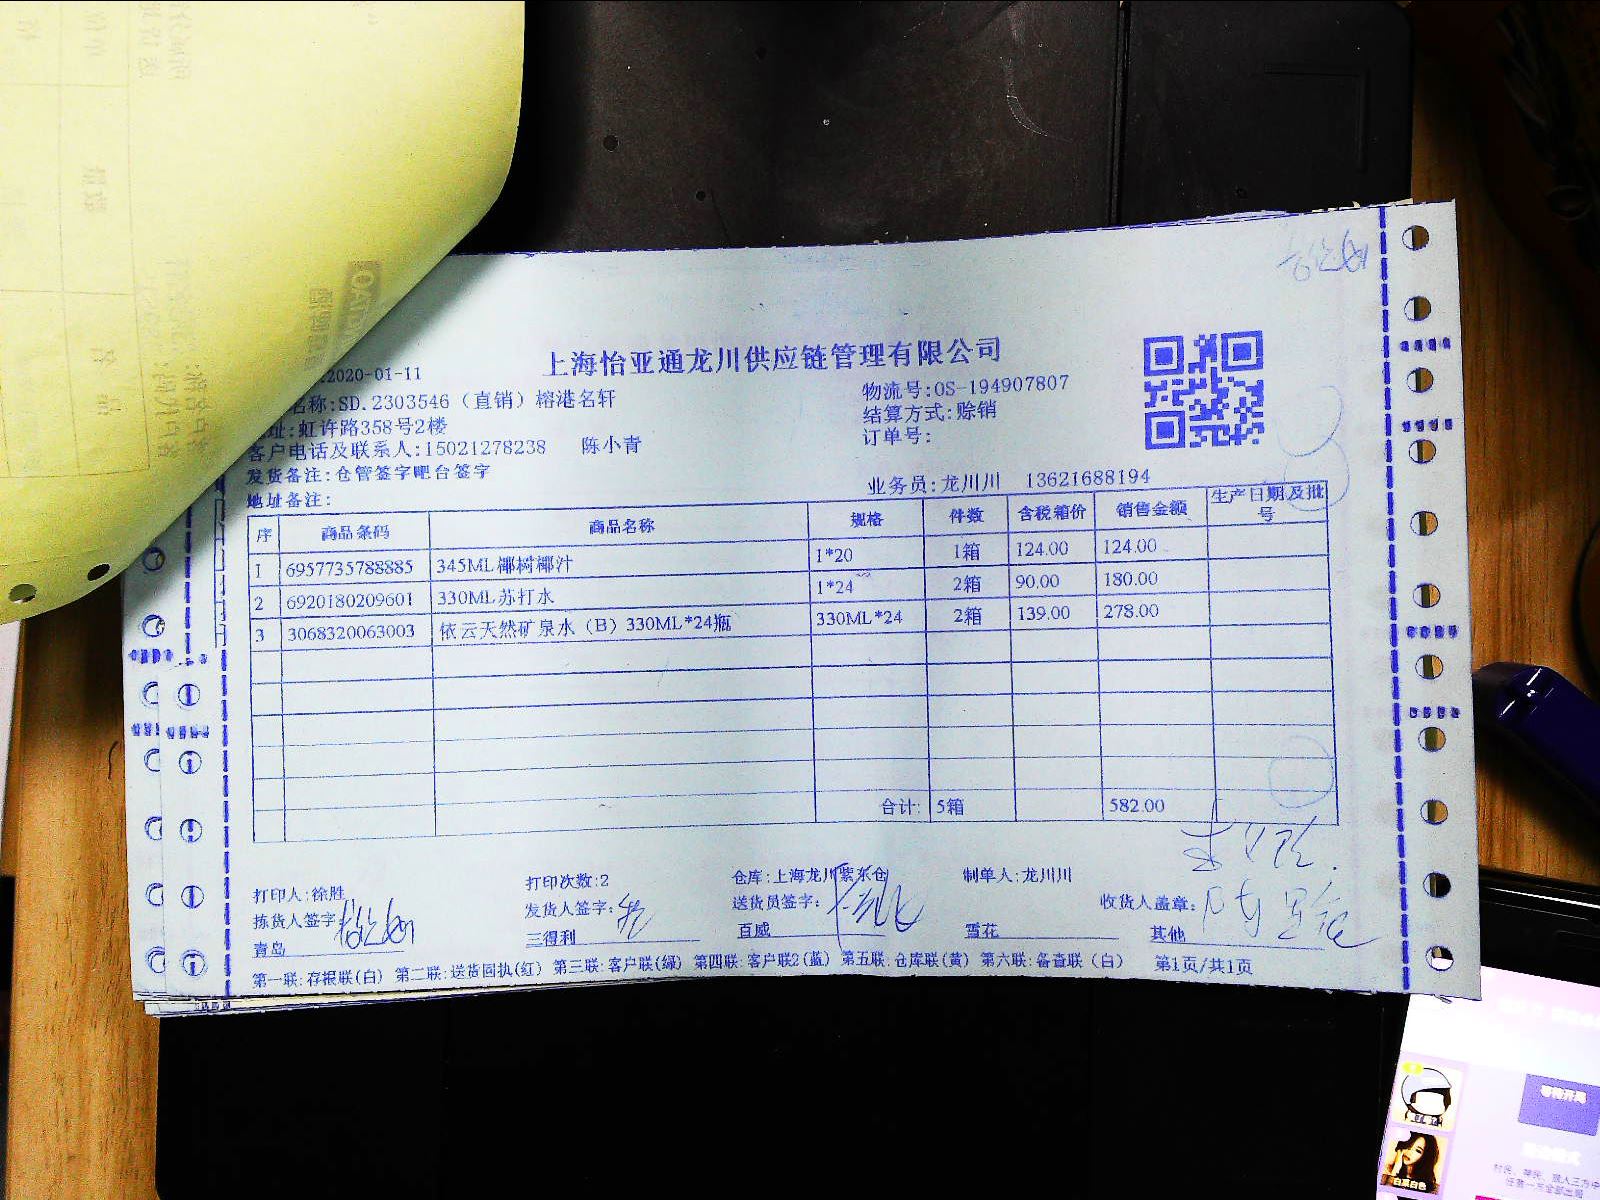 上海怡亚通龙川供应链管理有限公司
2020-01-11
名称:SD.2303546（直销）榕港名轩
物流号:OS-194907807
址:虹许路358号2楼
结算方式:赊销
客户电话及联系人:15021278238 陈小青
订单号:
发货备注:仓管签字吧台签字
业务员:龙川川 13621688194
地址备注:
序 商品条码 商品名称 规格 件数 含税箱价 销售金额 生产日期及批号
1 6957735788885 345ML椰树椰汁 1*20 1箱 124.00 124.00
2 6920180209601 330ML苏打水 1*24 2箱 90.00 180.00
3 3068320063003 依云天然矿泉水（B）330ML*24瓶 330ML*24 2箱 139.00 278.00
合计: 5箱 582.00
打印人:徐胜 打印次数:2 仓库:上海龙川紫东仓 制单人:龙川川
拣货人签字: 发货人签字: 送货员签字: 收货人盖章:
青岛 三得利 百威 雪花 其他
第一联:存根联(白) 第二联:送货回执(红) 第三联:客户联(绿) 第四联:客户联2(蓝) 第五联:仓库联(黄) 第六联:备查联（白） 第1页/共1页